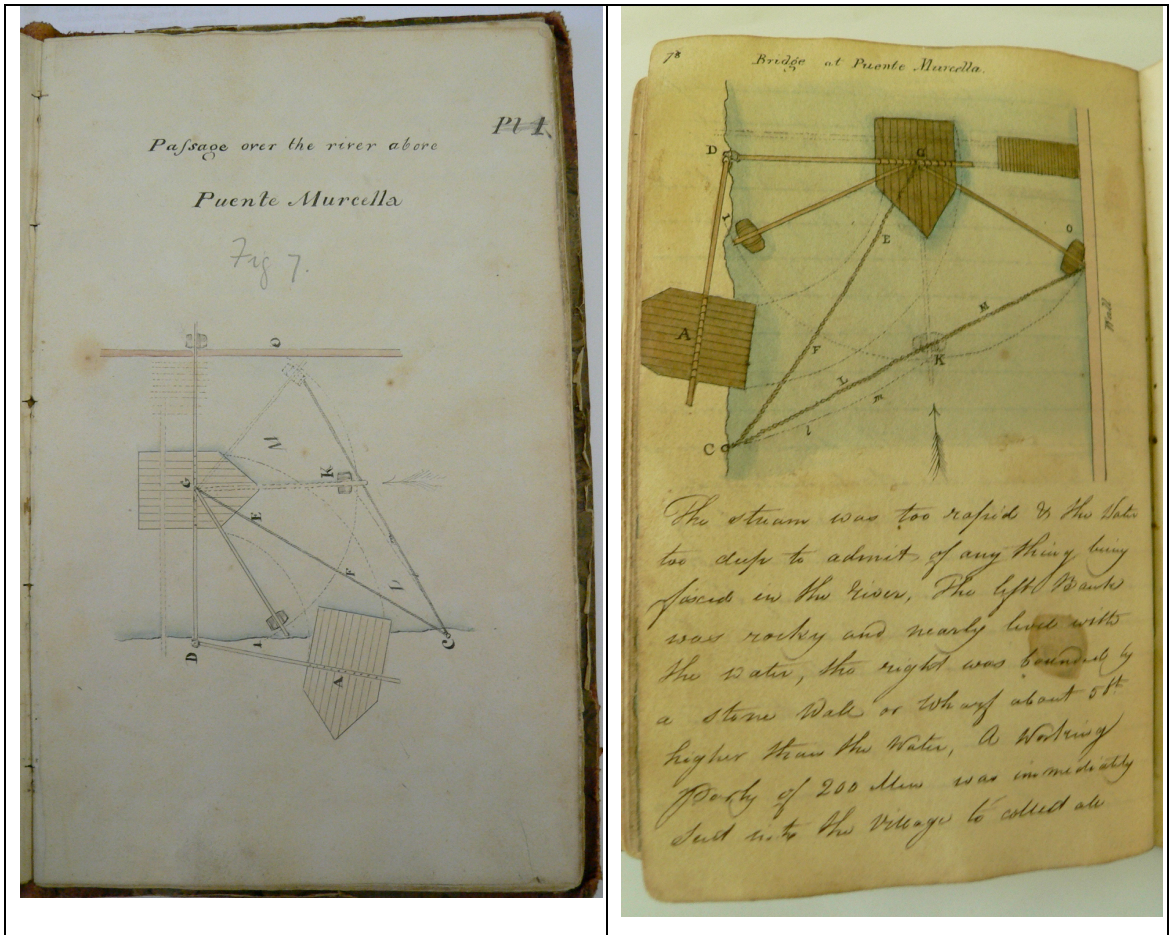 Pl 1
Paſsage over the river above
Puente Murcella
Fig 7.
O
M
K
G
E
F
L
D
I
A
C
78
Bridge at Puente Murcella.
D
G
I
E
O
A
N
Wall
F
K
L
m
C
l
The stream was too rapid & the Water
too deep to admit of any thing being
fixed in the River, The left Bank
was rocky and nearly level with
the water, the right was bounded by
a stone Wall or Wharf about 5ft
higher than the Water, A Working
Party of 200 Men was immediately
Sent into the Village to collect all